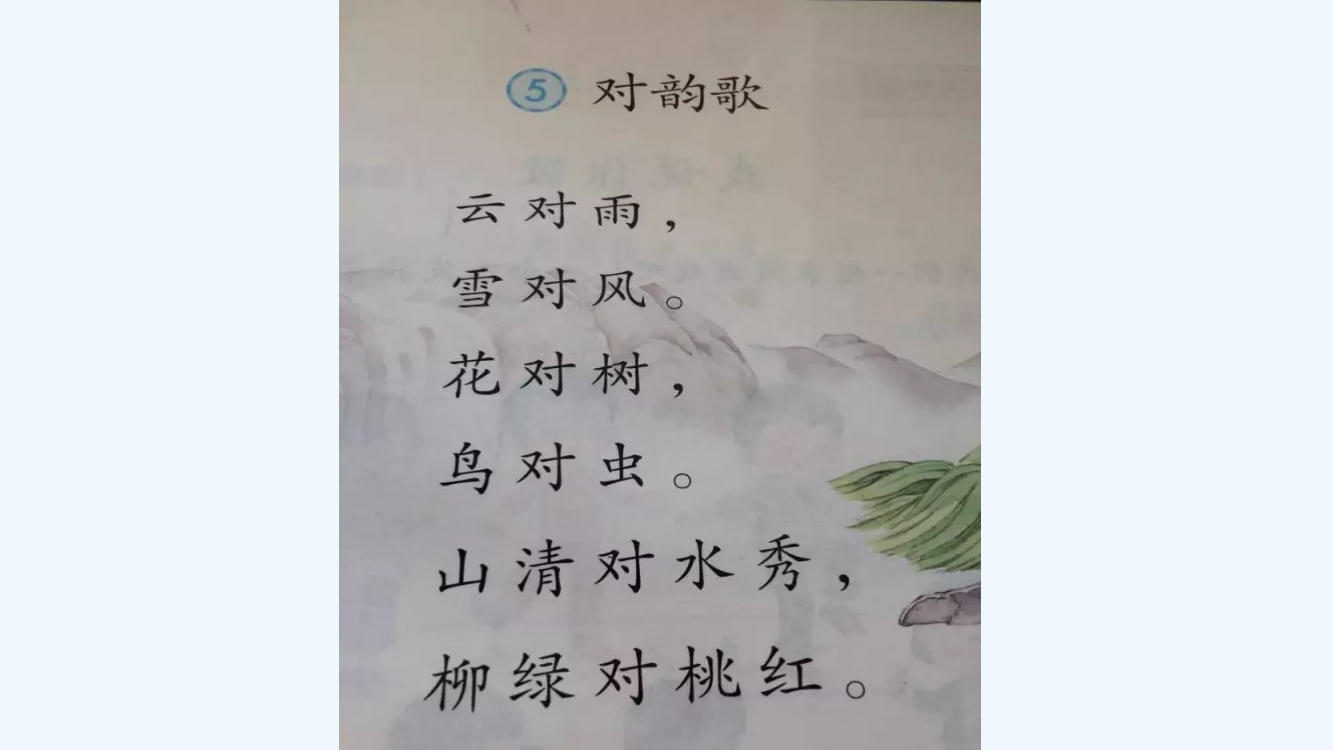 5 对韵歌
云对雨，
雪对风。
花对树，
鸟对虫。
山清对水秀，
柳绿对桃红。